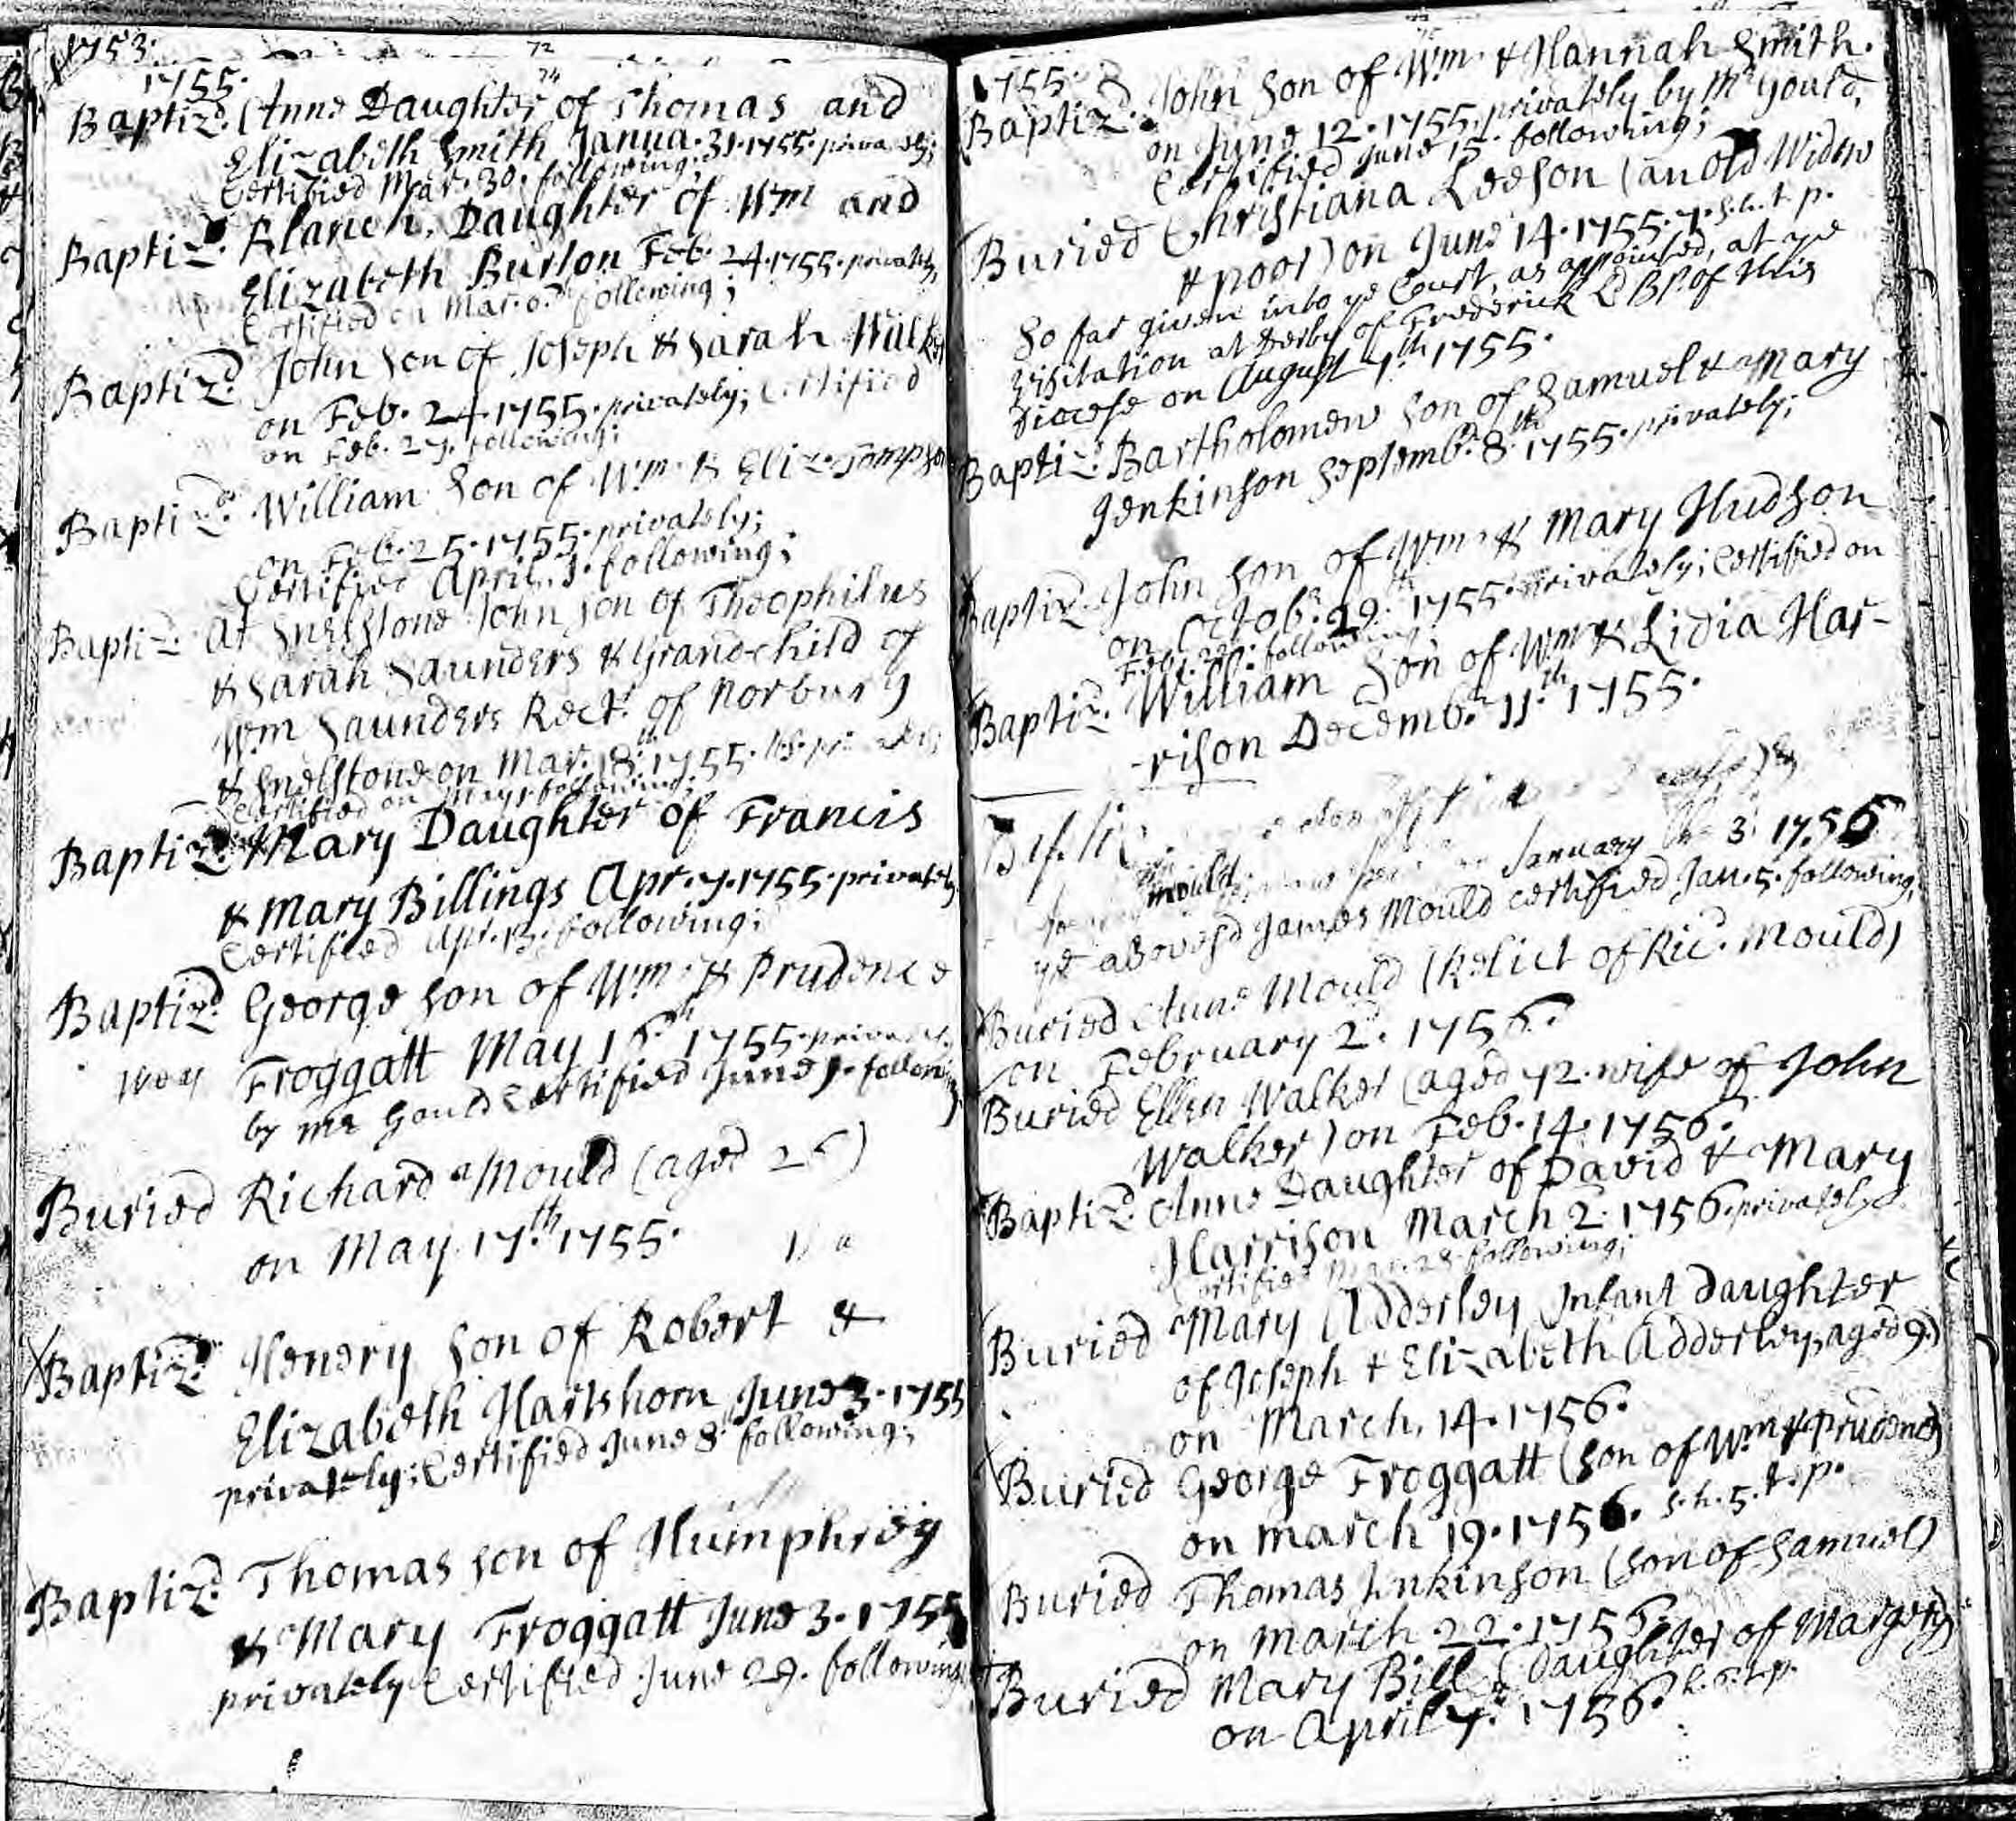 1753.
72
1755.
74
Baptizd. Anne Daughter of Thomas and
Elizabeth Smith Janua. 31. 1755. privately;
Certified Mar. 30. following;
Baptizd. Blanch, Daughter of Wm and
Elizabeth Burton Feb. 24. 1755. privately,
Certified on Mar. following;
Baptizd. John Son of Joseph & Sarah Walker
on Feb. 24. 1755. privately; Certified
on Feb. 27. following;
Baptizd. William Son of Wm. & Eliz. Tompson
on Feb. 25. 1755. privately;
Certified April. 1. following;
Baptizd. At Snelstone John Son of Theophilus
& Sarah Saunders & Grandchild of
Wm Saunders Rectr. of Norbury
& Snelstone on Mar. 18th. 1755.
Certified on May 1. following;
Baptizd. Mary Daughter of Francis
& Mary Billings Apr. 7. 1755. privately
Certified Apr. 13. following;
Baptizd. George Son of Wm. & Prudence
Froggatt May 16th 1755. privately
by Mr Gould Certified June 1. following
Buried Richard Mould (aged 26)
on May. 17.th 1755.
Baptizd. Henery Son of Robert &
Elizabeth Hartshorn June 3. 1755
privately; Certified June 8. following;
Baptizd. Thomas Son of Humphrey
& Mary Froggatt June 3. 1755
privately Certified June 29. following
1755.
Baptizd. John Son of Wm. & Hannah Smith.
on June 12. 1755. privately by Mr Gould,
Certified June 15. following;
Buried Christiana Leeson (an old Widow
& poor) on June 14. 1755. 7. s.h.t.p.
So far given into ye Court, as appointed, at ye
Visitation at Derby of Frederick Ld Bp. of this
Diocese on August 7.th 1755.
Baptizd. Bartholomew Son of Samuel & Mary
Jenkinson Septembr. 8.th 1755. privately;
Baptizd. John Son of Wm. & Mary Hudson
on Octobr. 29.th 1755. privately; Certified on
Feb. following
Baptizd. William Son of Wm & Lidia Har-
-rison Decembr. 11.th 1755.
Mould, January 3 1756
ye abovesd James Mould certified Jan. 5. following;
Buried Anne Mould (Relict of Ricd. Mould)
on February 2d. 1756.
Buried Ellen Walker (aged 42. wife of John
Walker) on Feb. 14. 1756.
Baptizd. Anne Daughter of David & Mary
Harrison March 2. 1756. privately
Certified Mar. 28. following;
Buried Mary Adderley Infant Daughter
of Joseph & Elizabeth Adderley, aged 9.)
on March. 14. 1756.
Buried George Froggatt (Son of Wm & Prudence)
on March 19. 1756. s.h.5.t.p.
Buried Thomas Jenkinson (Son of Samuel)
on March. 22. 1756.
Buried Mary Bill (Daughter of Margery)
on April 7. 1756.